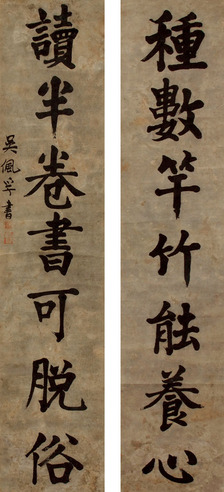 種數竿竹能養心
讀半卷書可脱俗
吳佩孚書